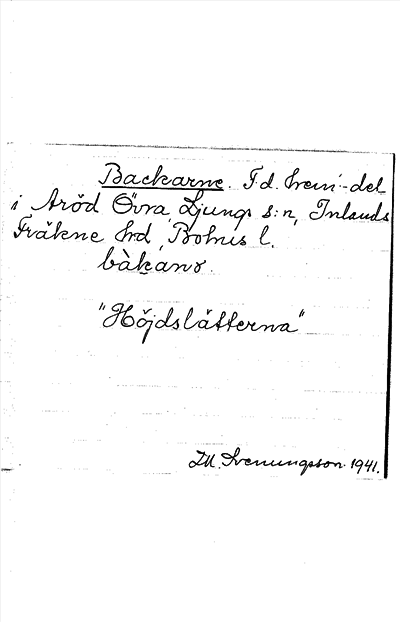 Backarne. F d. hem-del
i Aröd Övra, Ljungs s:n, Inlands
Fräkne hrd, Bohus l.
bàkanɤ.
"Höjdslätterna"
M. Svenungsson 1941.